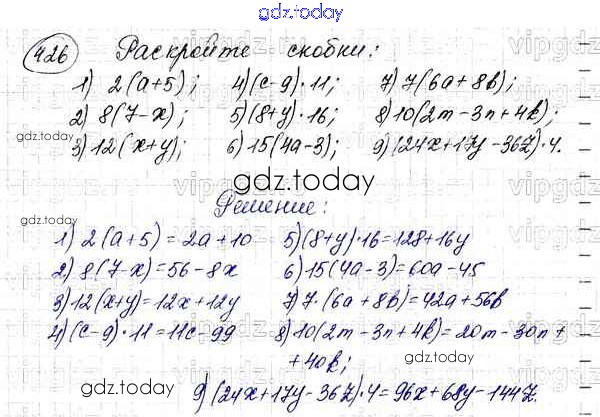 gdz.today
426 Раскройте скобки:
1) 2(a+5); 4)(c-9)·11; 7)7(6a+8b);
2) 8(7-x); 5)(8+y)·16; 8)10(2m-3n+4k);
gdz.today
3)12(x+y); 6)15(4a-3); 9)(24x+17y-36z)·4.
gdz.today
Решение:
1) 2(a+5)=2a+10 5)(8+y)·16=128+16y
2) 8(7-x)=56-8x 6)15(4a-3)=60a-45
3)12(x+y)=12x+12y 7)7·(6a+8b)=42a+56b
4)(c-9)·11=11c-99 8)10(2m-3n+4k)=20m-30n+
+40k;
gdz.today
gdz.today
9)(24x+17y-36z)·4=96x+68y-144z.